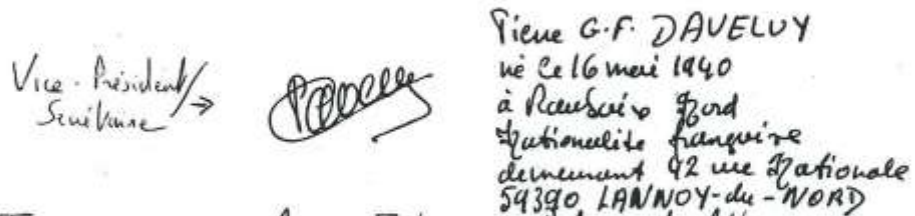 Vice-Président/
Secrétaire →
Pierre G.F. DAVELUY
né le 16 mai 1940
à Roubaix Nord
Nationalité française
demeurant 42 rue Nationale
59390 LANNOY-du-NORD